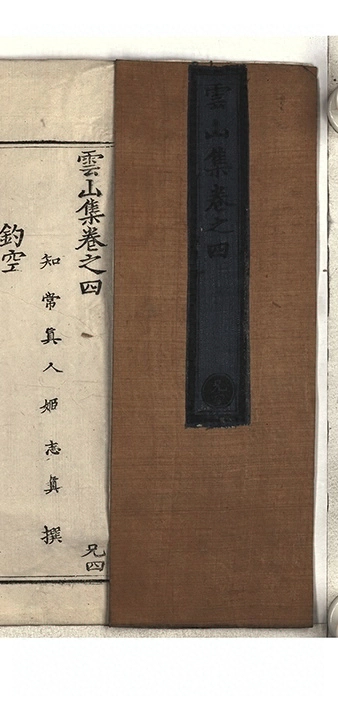 雲山集卷之四
兄四
雲山集卷之四
兄四
知常真人姬志真　撰
釣空